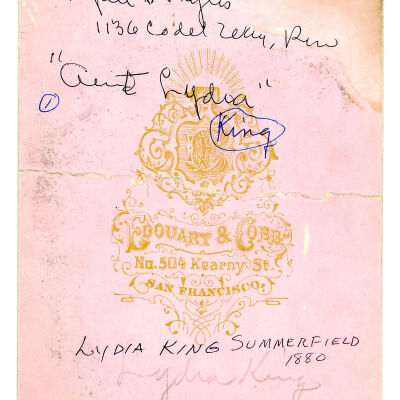 1136 Codel
"Aunt Lydia"
① King
EDOUART & COBB.
No. 504 Kearny St.
SAN FRANCISCO.
LYDIA KING SUMMERFIELD
1880
Lydia King